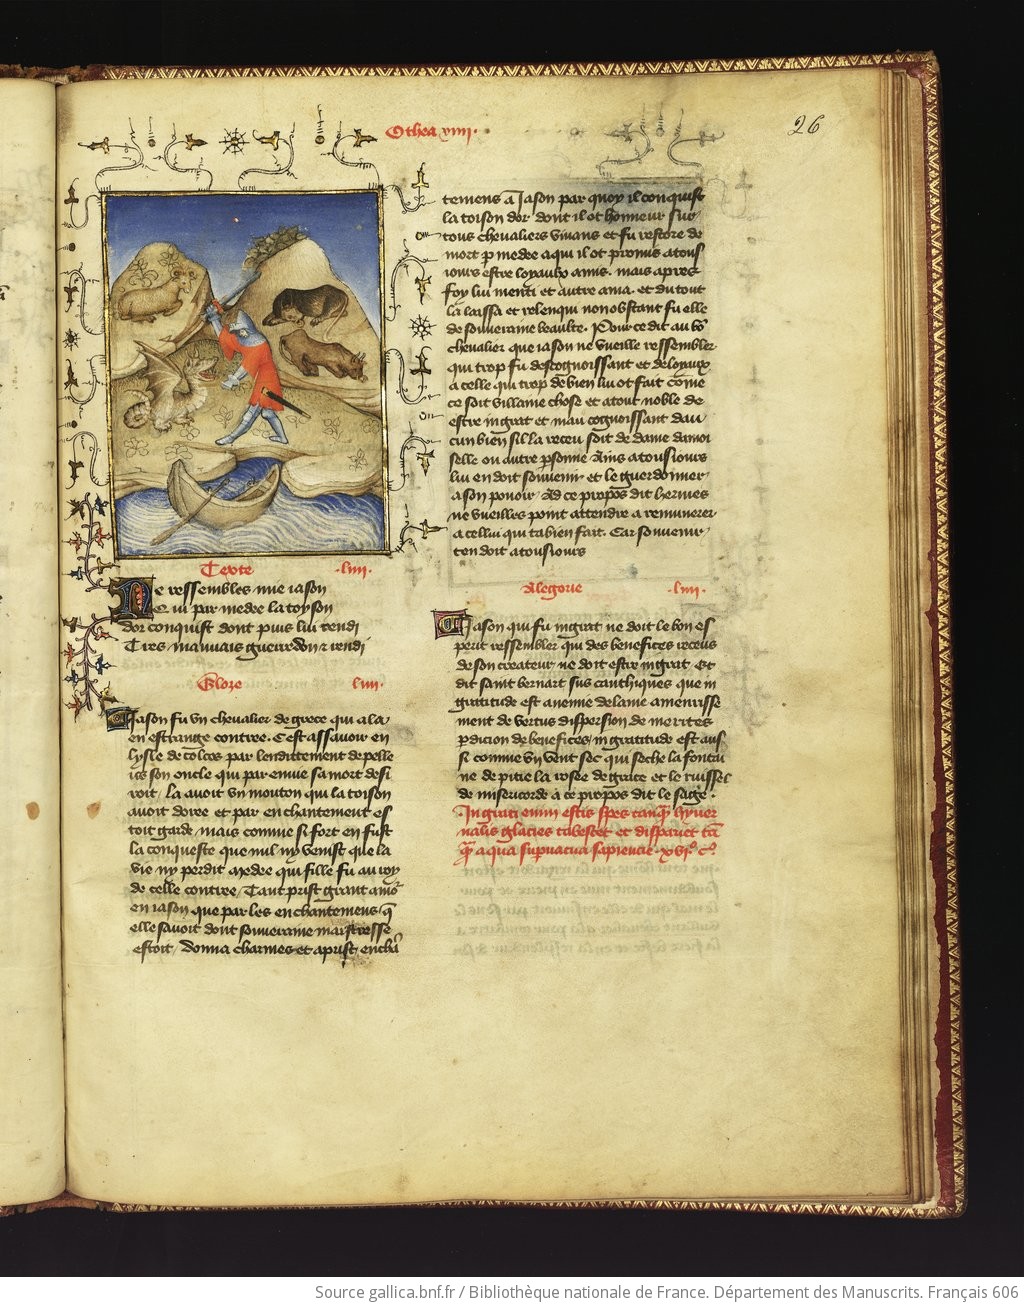 Othea xviii.
26
Texte .liiii.
Ne ressembles mie iason
Qui par medee la toyson
dor conquist dont puis lui rendi
Tres mauuais guerredon &
Glose liiii.
Jason fu vn chevalier de grece qui ala
en estrange contree. Cest assauoir en
lysle de colcos par lenditement de pelle
ias son oncle qui par enuie sa mort desi
roit / la auoit vn mouton qui la toison
auoit doree et par enchantement es
toit garde / mais comme si fort en fust
la conqueste que nul ny venist que la
vie ny perdit medee qui fille fu au roy
de celle contree / Tant prist grant amor
en iason que par les enchantemens q̃
elle sauoit dont souueraine maistresse
estoit / donna charmes et aprist enchã
temens a Jason par quoy il conquist
la toison dor dont il ot honneur sur
tous cheualiers viuans et fu restore de
mort p medee a qui il ot promis a tous
iours estre loyaulx amis. mais apres
foy lui menti et autre ama. et du tout
la laissa et relenqui nonobstant fu elle
de souueraine beaulte. Pour ce dit au bõ
cheualier que iason ne vueille ressembler
qui trop fu descognoissant et desloyaux
a celle qui trop de bien lui ot fait Cõme
ce soit villaine chose et a tout noble de
estre ingrat et mau cognoissant dau
cun bien sil la receu soit de dame damoi
selle ou autre psonne Ains a tousiours
lui en doit souuenir et le guerdonner
a son pouoir. Ad ce propos dit hermes
ne vueilles point attendre a remunerer
a cellui qui ta bien fait. Car souuenir
ten doit a tousiours
Alegorie .liiii.
Jason qui fu ingrat ne doit le bon es
perit ressembler qui des benefices receus
de son createur ne doit estre ingrat Et
dit saint bernart sus cantiques que in
gratitude est anemie de lame amenrisse
ment de vertus dispersion de merites
pdicion de benefices / ingratitude est aus
si comme vn vent sec qui seche la fontai
ne de pitie la rosee de grace et le ruissel
de misericorde a ce propos dit le sage.
Ingrati enim estis spes tanq̃ hyuer
nalis glacies tabescet et disparuet tã
q̃ aqua supuacua sapiencie. xvi.º c.º
Source gallica.bnf.fr / Bibliothèque nationale de France. Département des Manuscrits. Français 606